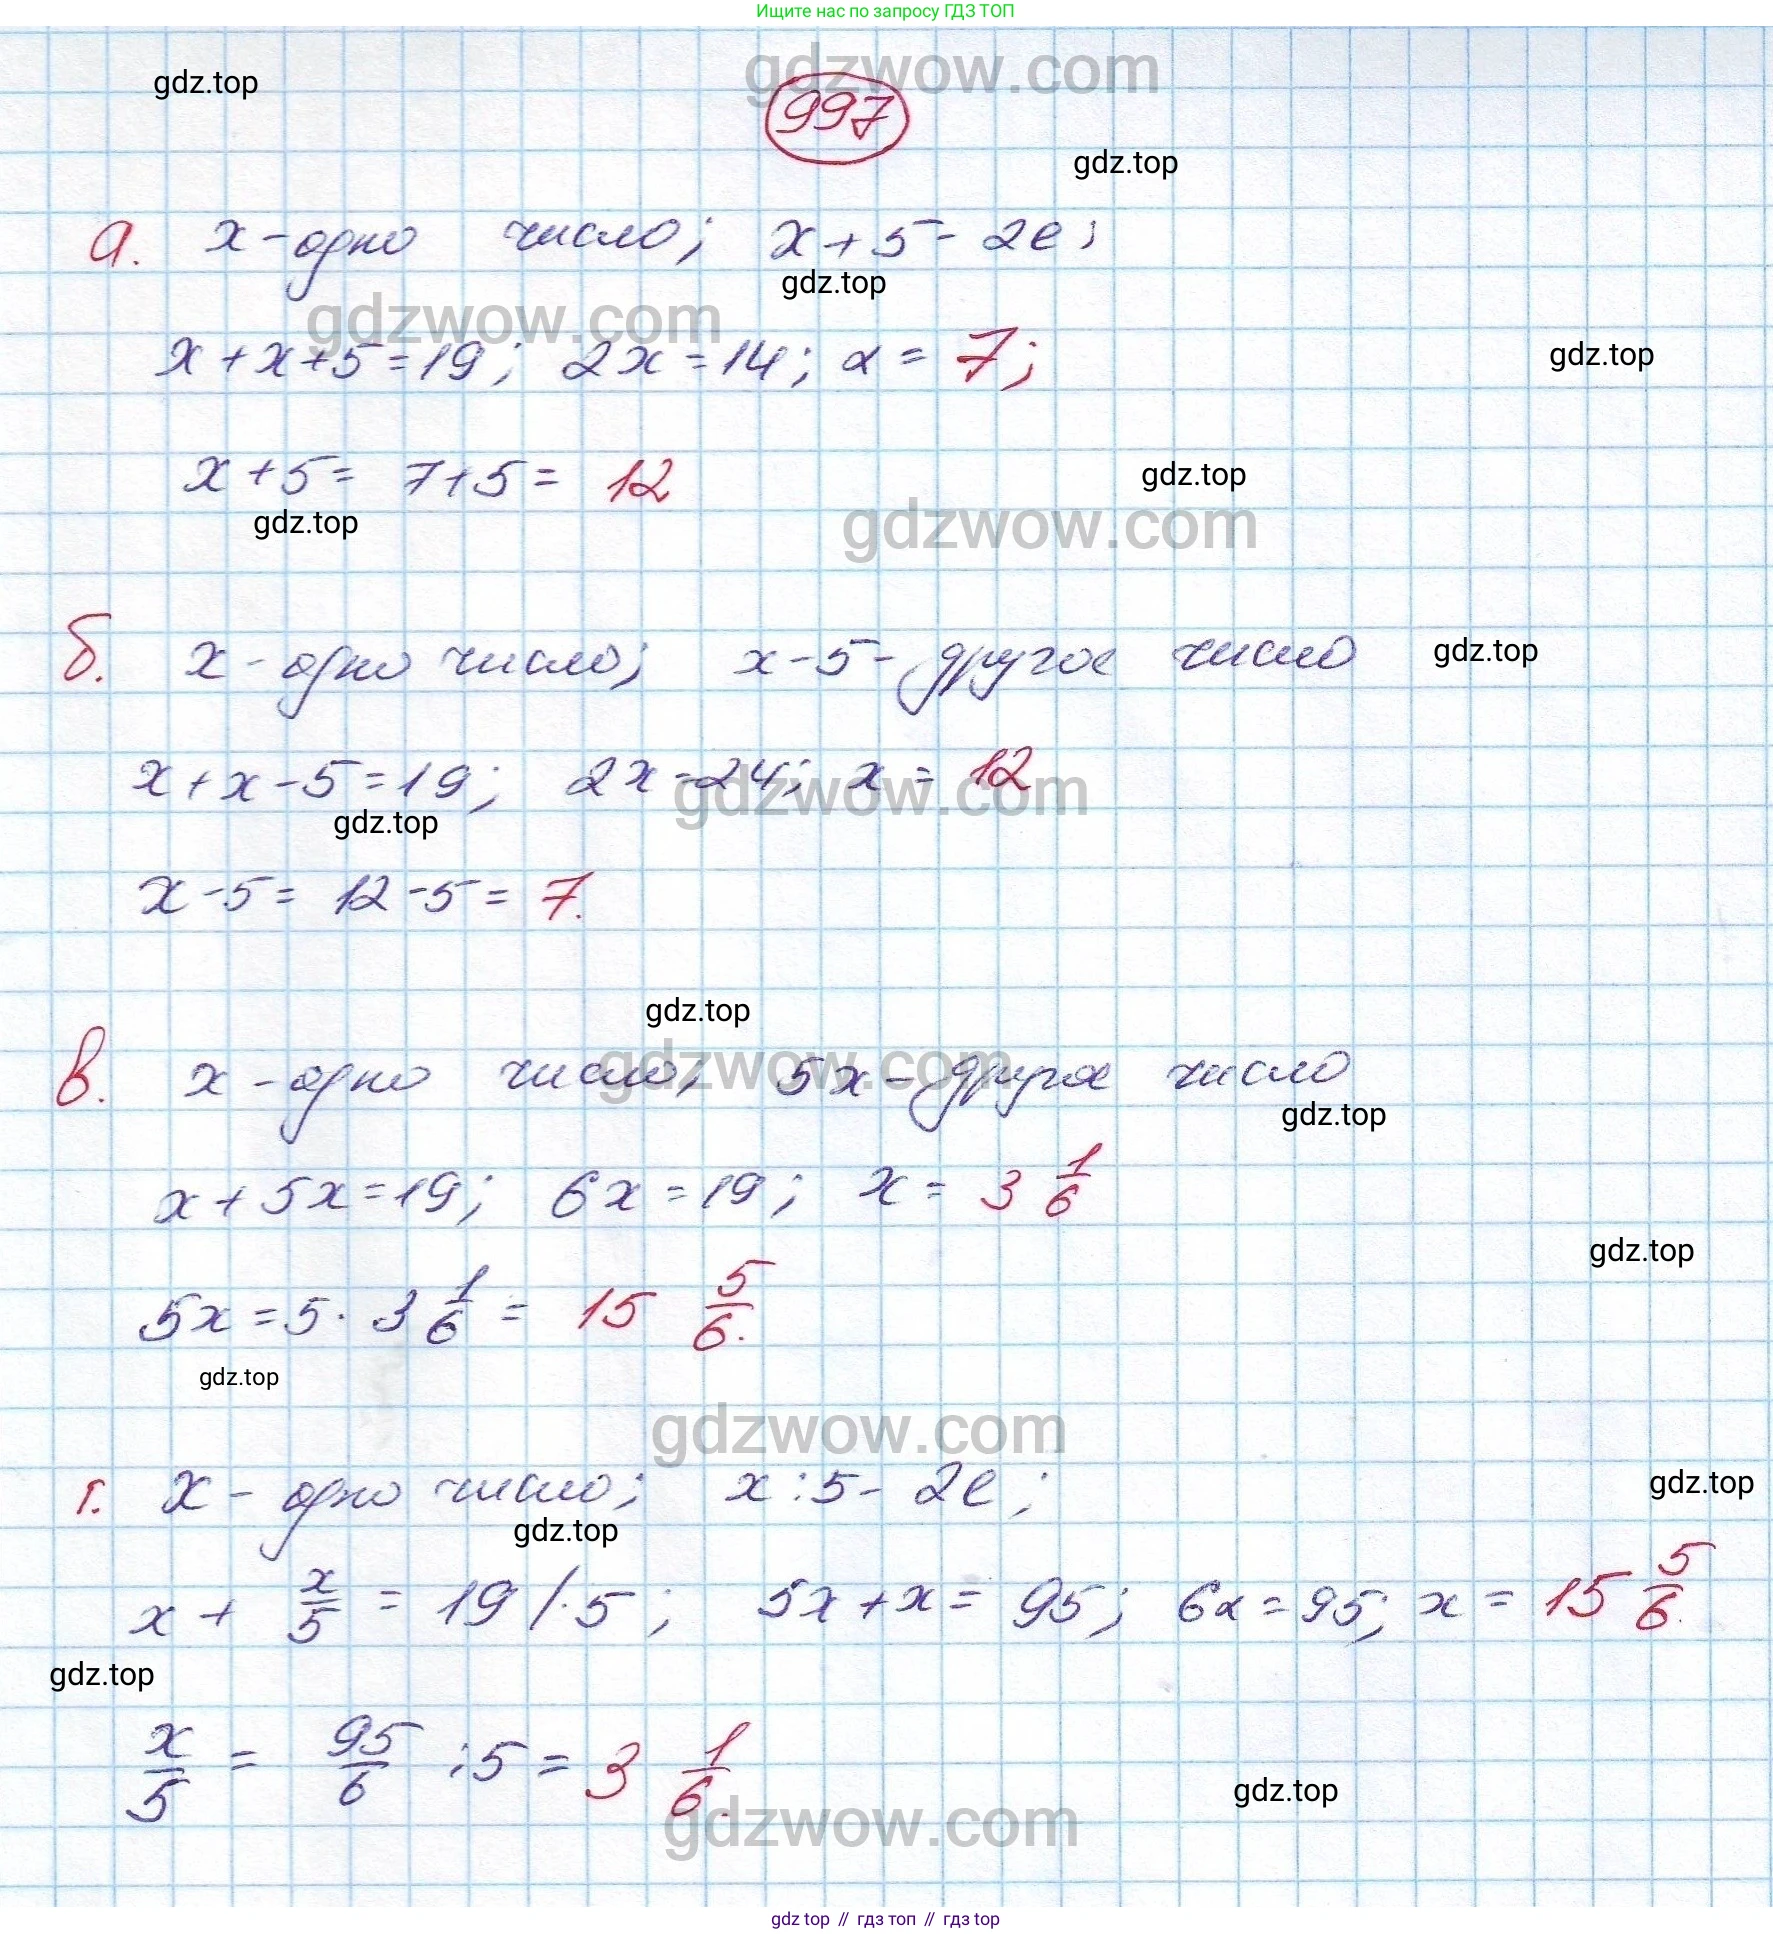 Ищите нас по запросу ГДЗ ТОП
gdzwow.com
gdz.top
997
gdz.top
а. x - одно число; x + 5 - 2е;
gdz.top
gdzwow.com
x + x + 5 = 19; 2x = 14; x = 7;
gdz.top
x + 5 = 7 + 5 = 12
gdz.top
gdz.top
gdzwow.com
б. x - одно число; x - 5 - другое число
gdz.top
x + x - 5 = 19; 2x = 24; x = 12
gdzwow.com
gdz.top
x - 5 = 12 - 5 = 7.
gdz.top
gdzwow.com
в. x - одно число; 5x - другое число
gdz.top
x + 5x = 19; 6x = 19; x = 3 1/6
gdz.top
5x = 5 · 3 1/6 = 15 5/6.
gdz.top
gdzwow.com
г. x - одно число; x : 5 - 2е;
gdz.top
gdz.top
x + x/5 = 19 / · 5; 5x + x = 95; 6x = 95; x = 15 5/6.
gdz.top
x/5 = 95/6 : 5 = 3 1/6.
gdz.top
gdzwow.com
gdz top // гдз топ // гдз top